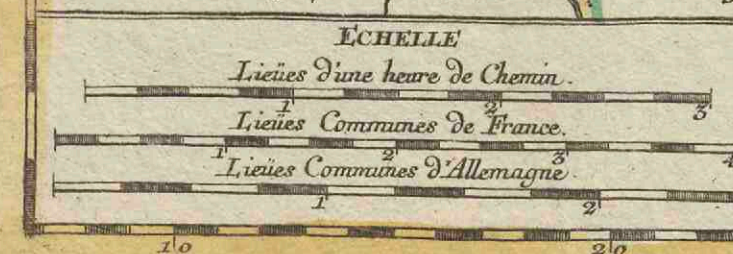 ECHELLE
Lieües d'une heure de Chemin.
1 2 3
Lieües Communes de France.
1 2 3 4
Lieües Communes d'Allemagne.
1 2
10 20